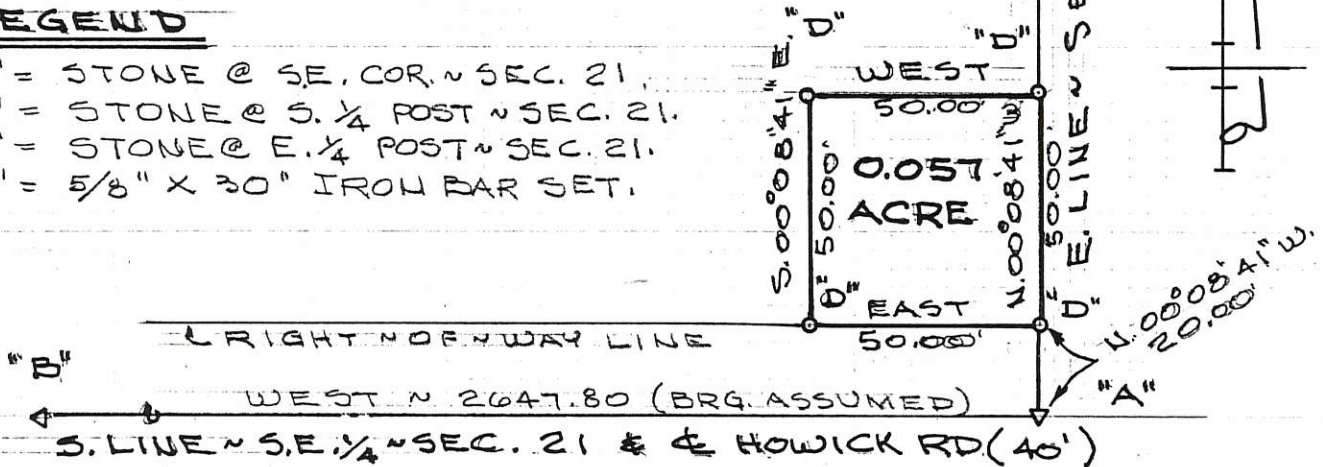 EGEND
" = STONE @ S.E. COR. ~ SEC. 21.
" = STONE @ S. 1/4 POST ~ SEC. 21.
" = STONE @ E. 1/4 POST ~ SEC. 21.
" = 5/8" X 30" IRON BAR SET.
"D"
"D"
WEST
50.00'
S.00°08'41"E.
50.00'
0.057
ACRE
N.00°08'41"W.
50.00'
E. LINE ~ SE
"D"
EAST
50.00'
"D"
N.00°08'41"W.
20.00'
RIGHT ~ OF ~ WAY LINE
"B"
WEST ~ 2647.80 (BRG. ASSUMED)
"A"
S. LINE ~ S.E. 1/4 ~ SEC. 21 & ℄ HOWICK RD. (40')